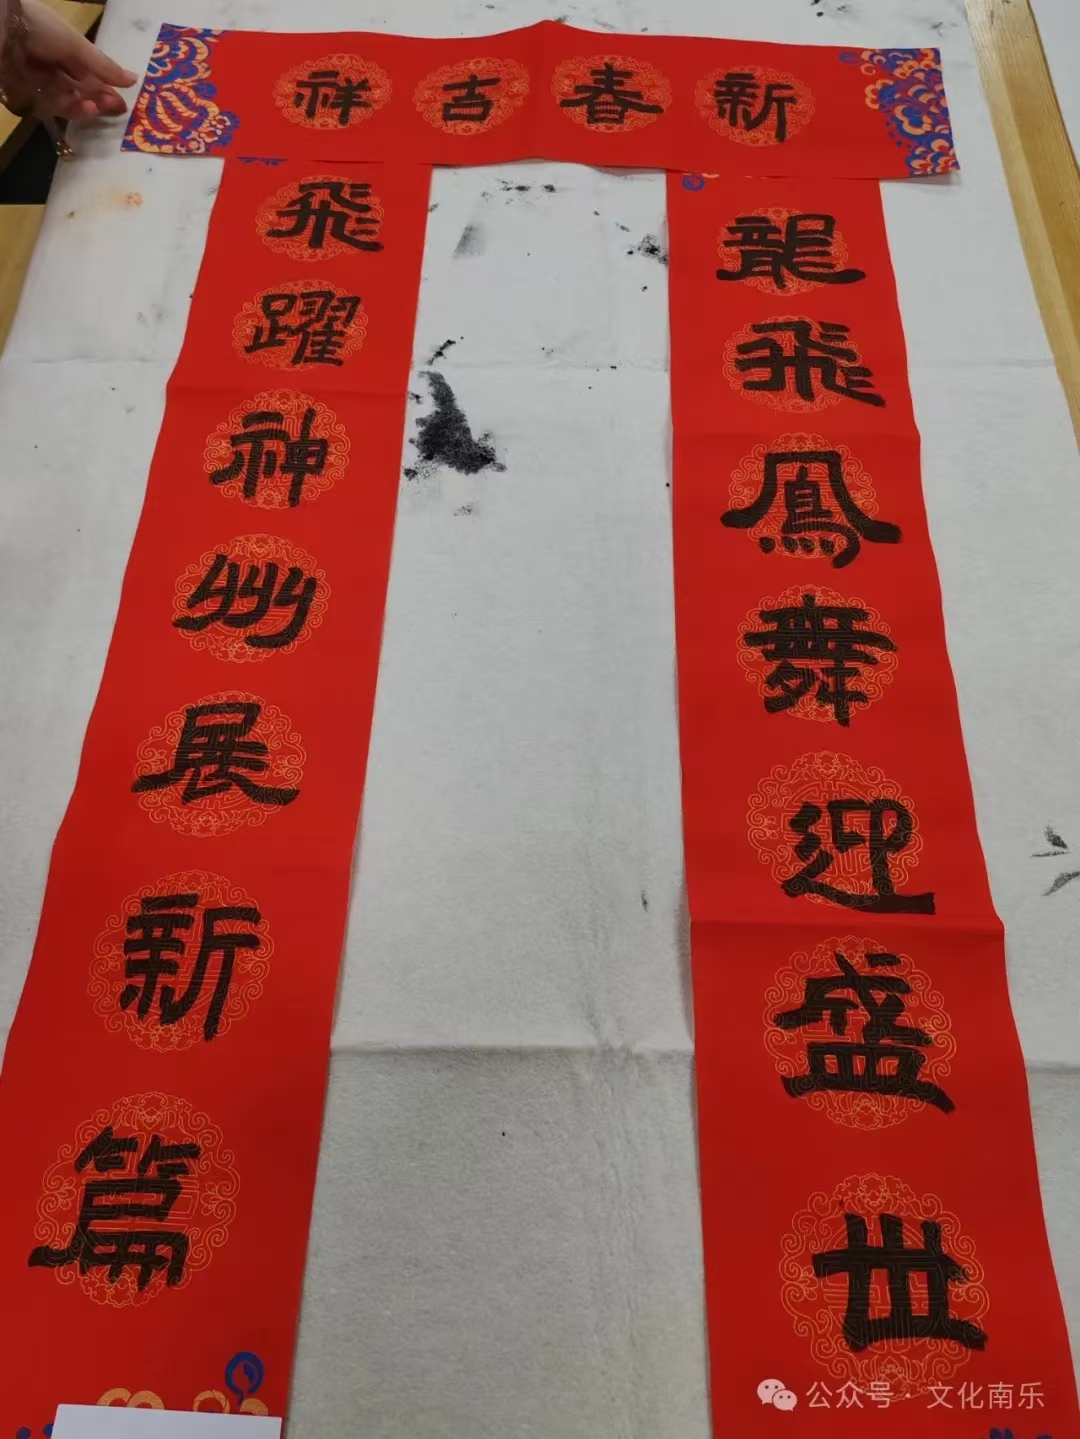 新春吉祥
龍飛鳳舞迎盛世
飛躍神州展新篇
公众号·文化南乐